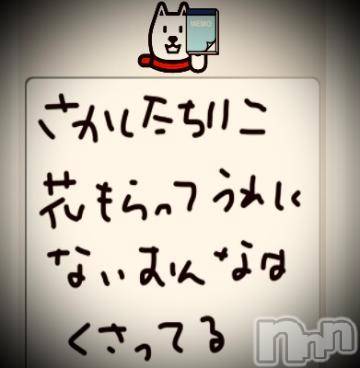 MEMO
さかしたちりこ
花もらってうれしく
ないおんなは
くさってる
nnn